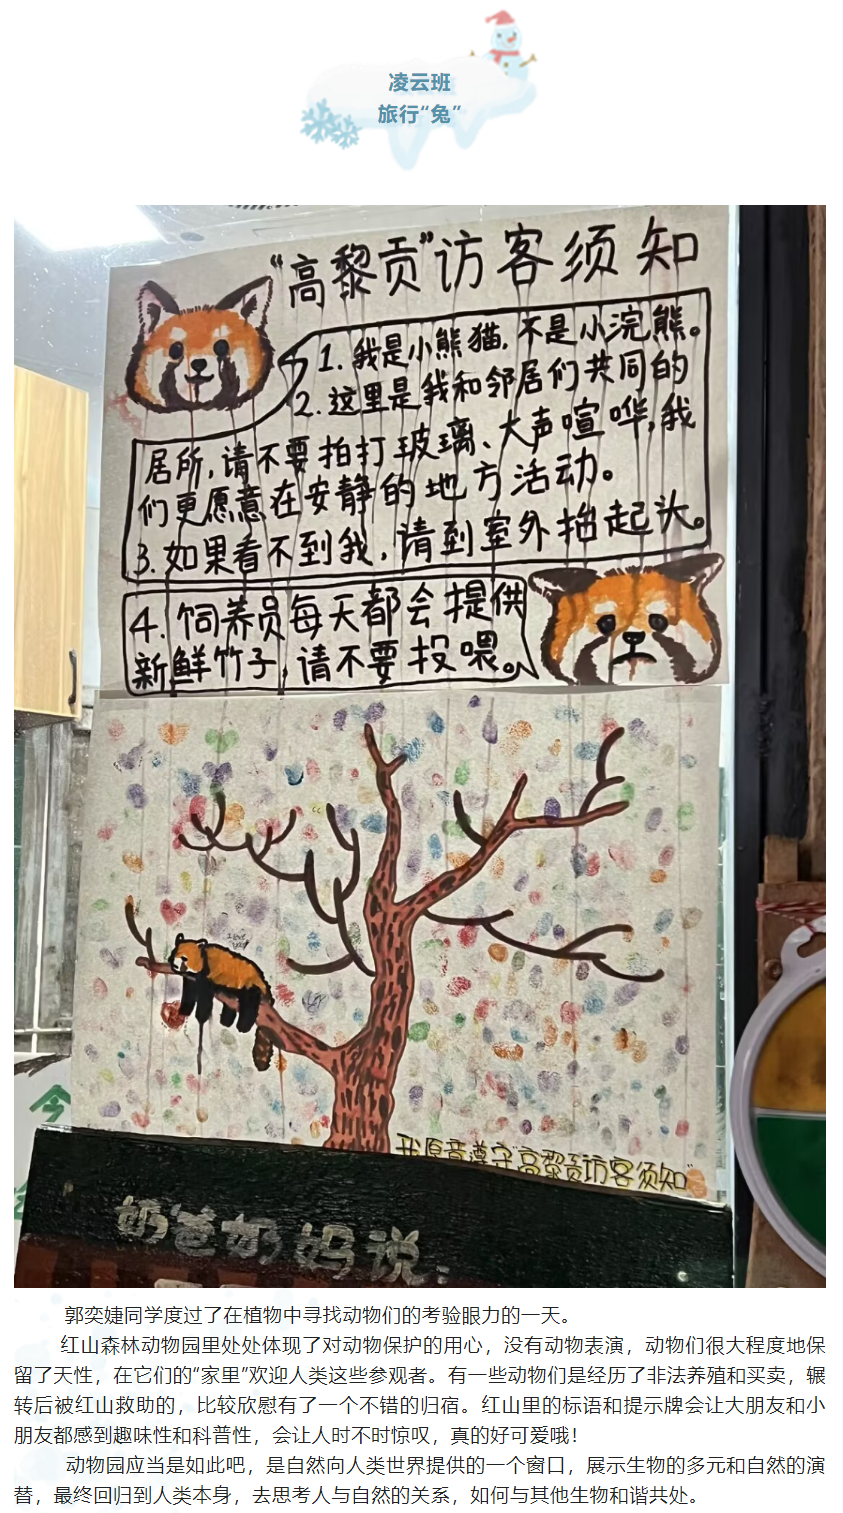 凌云班
旅行“兔”
“高黎贡”访客须知
1. 我是小熊猫，不是小浣熊。
2. 这里是我和邻居们共同的
居所，请不要拍打玻璃、大声喧哗，我
们更愿意在安静的地方活动。
3. 如果看不到我，请到室外抬起头。
4. 饲养员每天都会提供
新鲜竹子，请不要投喂。
我愿意遵守“高黎贡访客须知”
今
奶爸奶妈说：
郭奕婕同学度过了在植物中寻找动物们的考验眼力的一天。
红山森林动物园里处处体现了对动物保护的用心，没有动物表演，动物们很大程度地保
留了天性，在它们的“家里”欢迎人类这些参观者。有一些动物们是经历了非法养殖和买卖，辗
转后被红山救助的，比较欣慰有了一个不错的归宿。红山里的标语和提示牌会让大朋友和小
朋友都感到趣味性和科普性，会让人时不时惊叹，真的好可爱哦！
动物园应当是如此吧，是自然向人类世界提供的一个窗口，展示生物的多元和自然的演
替，最终回归到人类本身，去思考人与自然的关系，如何与其他生物和谐共处。